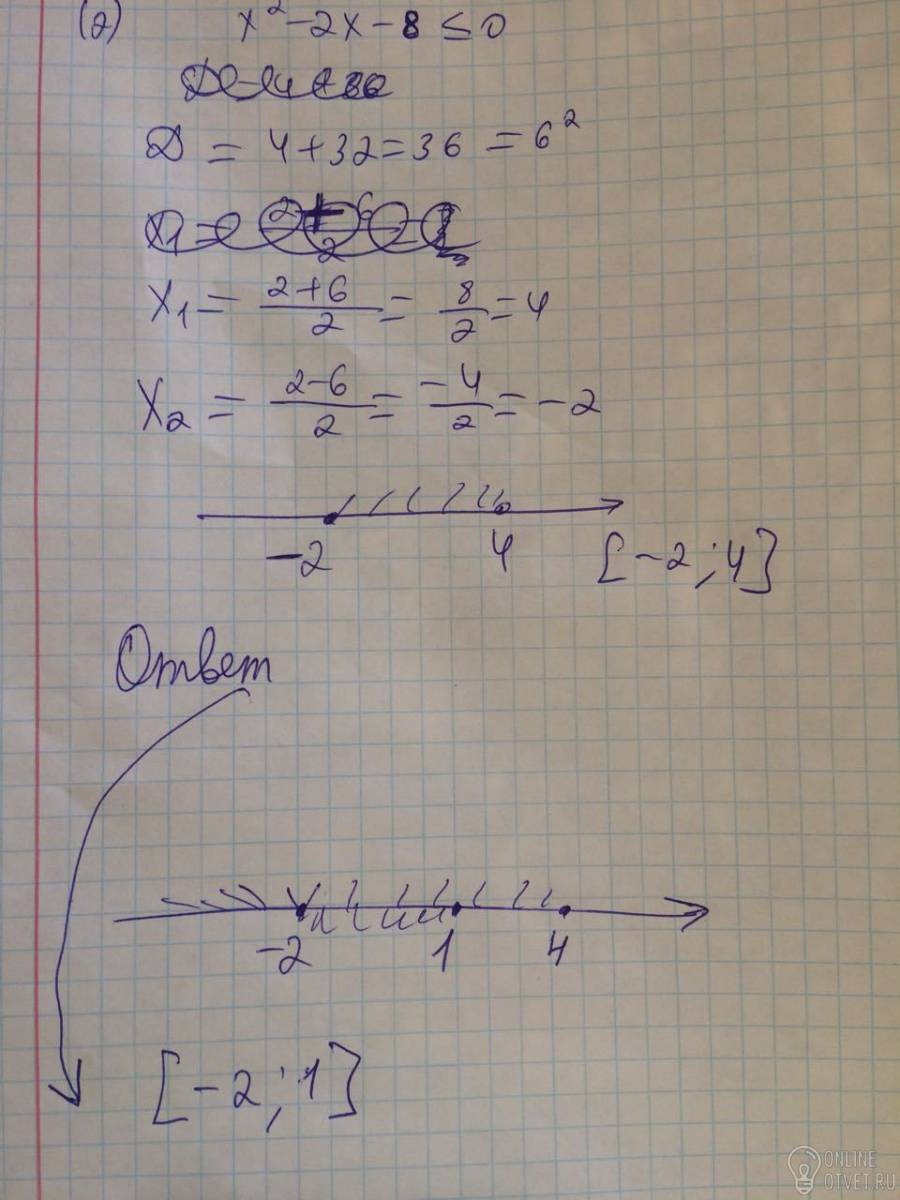 (2) x² − 2x − 8 ≤ 0
D = 4 + 32 = 36 = 6²
x₁ = (2+6)/2 = 8/2 = 4
x₂ = (2−6)/2 = −4/2 = −2
−2 4 [−2; 4]
Ответ
−2 1 4
[−2; 1]
ONLINE
OTVET.RU